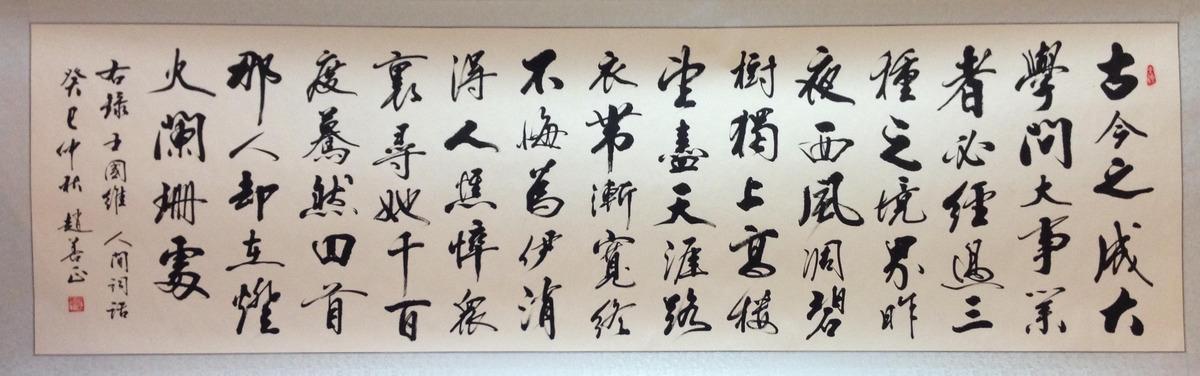 古今之成大
學問大事業
者必經過三
種之境界昨
夜西風凋碧
樹獨上高樓
望盡天涯路
衣帶漸寬終
不悔為伊消
得人憔悴眾
裏尋她千百
度驀然回首
那人却在燈
火闌珊處
右録王國維 人间詞話
癸巳仲秋 趙善正